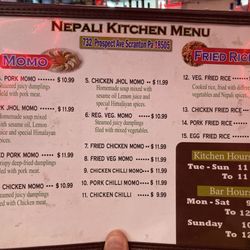 NEPALI KITCHEN MENU
732, Prospect Ave Scranton Pa 18505
MOMO
PORK MOMO $10.99
Steamed juicy dumplings
filled with pork meat.
JHOL MOMO $11.99
Homemade soup mixed
with sesame oil, Lemon
juice and special Himalayan
spices.
FRIED PORK MOMO $11.99
Steamed juicy dumplings
with pork meat.
CHICKEN MOMO $10.99
Steamed juicy dumplings
filled with Chicken meat.
5. CHICKEN JHOL MOMO $11.99
Homemade soup mixed
with sesame oil, Lemon
juice and special
Himalayan spices.
6. REG. VEG. MOMO $10.99
Steamed juicy dumplings
filled with mixed vegetables.
7. FRIED CHICKEN MOMO $11.99
8. FRIED VEG MOMO $11.99
9. CHICKEN CHILLI MOMO $11.99
10. PORK CHILLI MOMO $11.99
11. CHICKEN CHILLI $9.99
FRIED RICE
12. VEG. FRIED RICE
Cooked rice, fried with
vegetables and Nepali spices.
13. CHICKEN FRIED RICE
14. PORK FRIED RICE
15. EGG FRIED RICE
Kitchen Hours
Tue - Sun 11
To 11
Bar Hours
Mon - Sat 9
To 12
Sunday
To 12